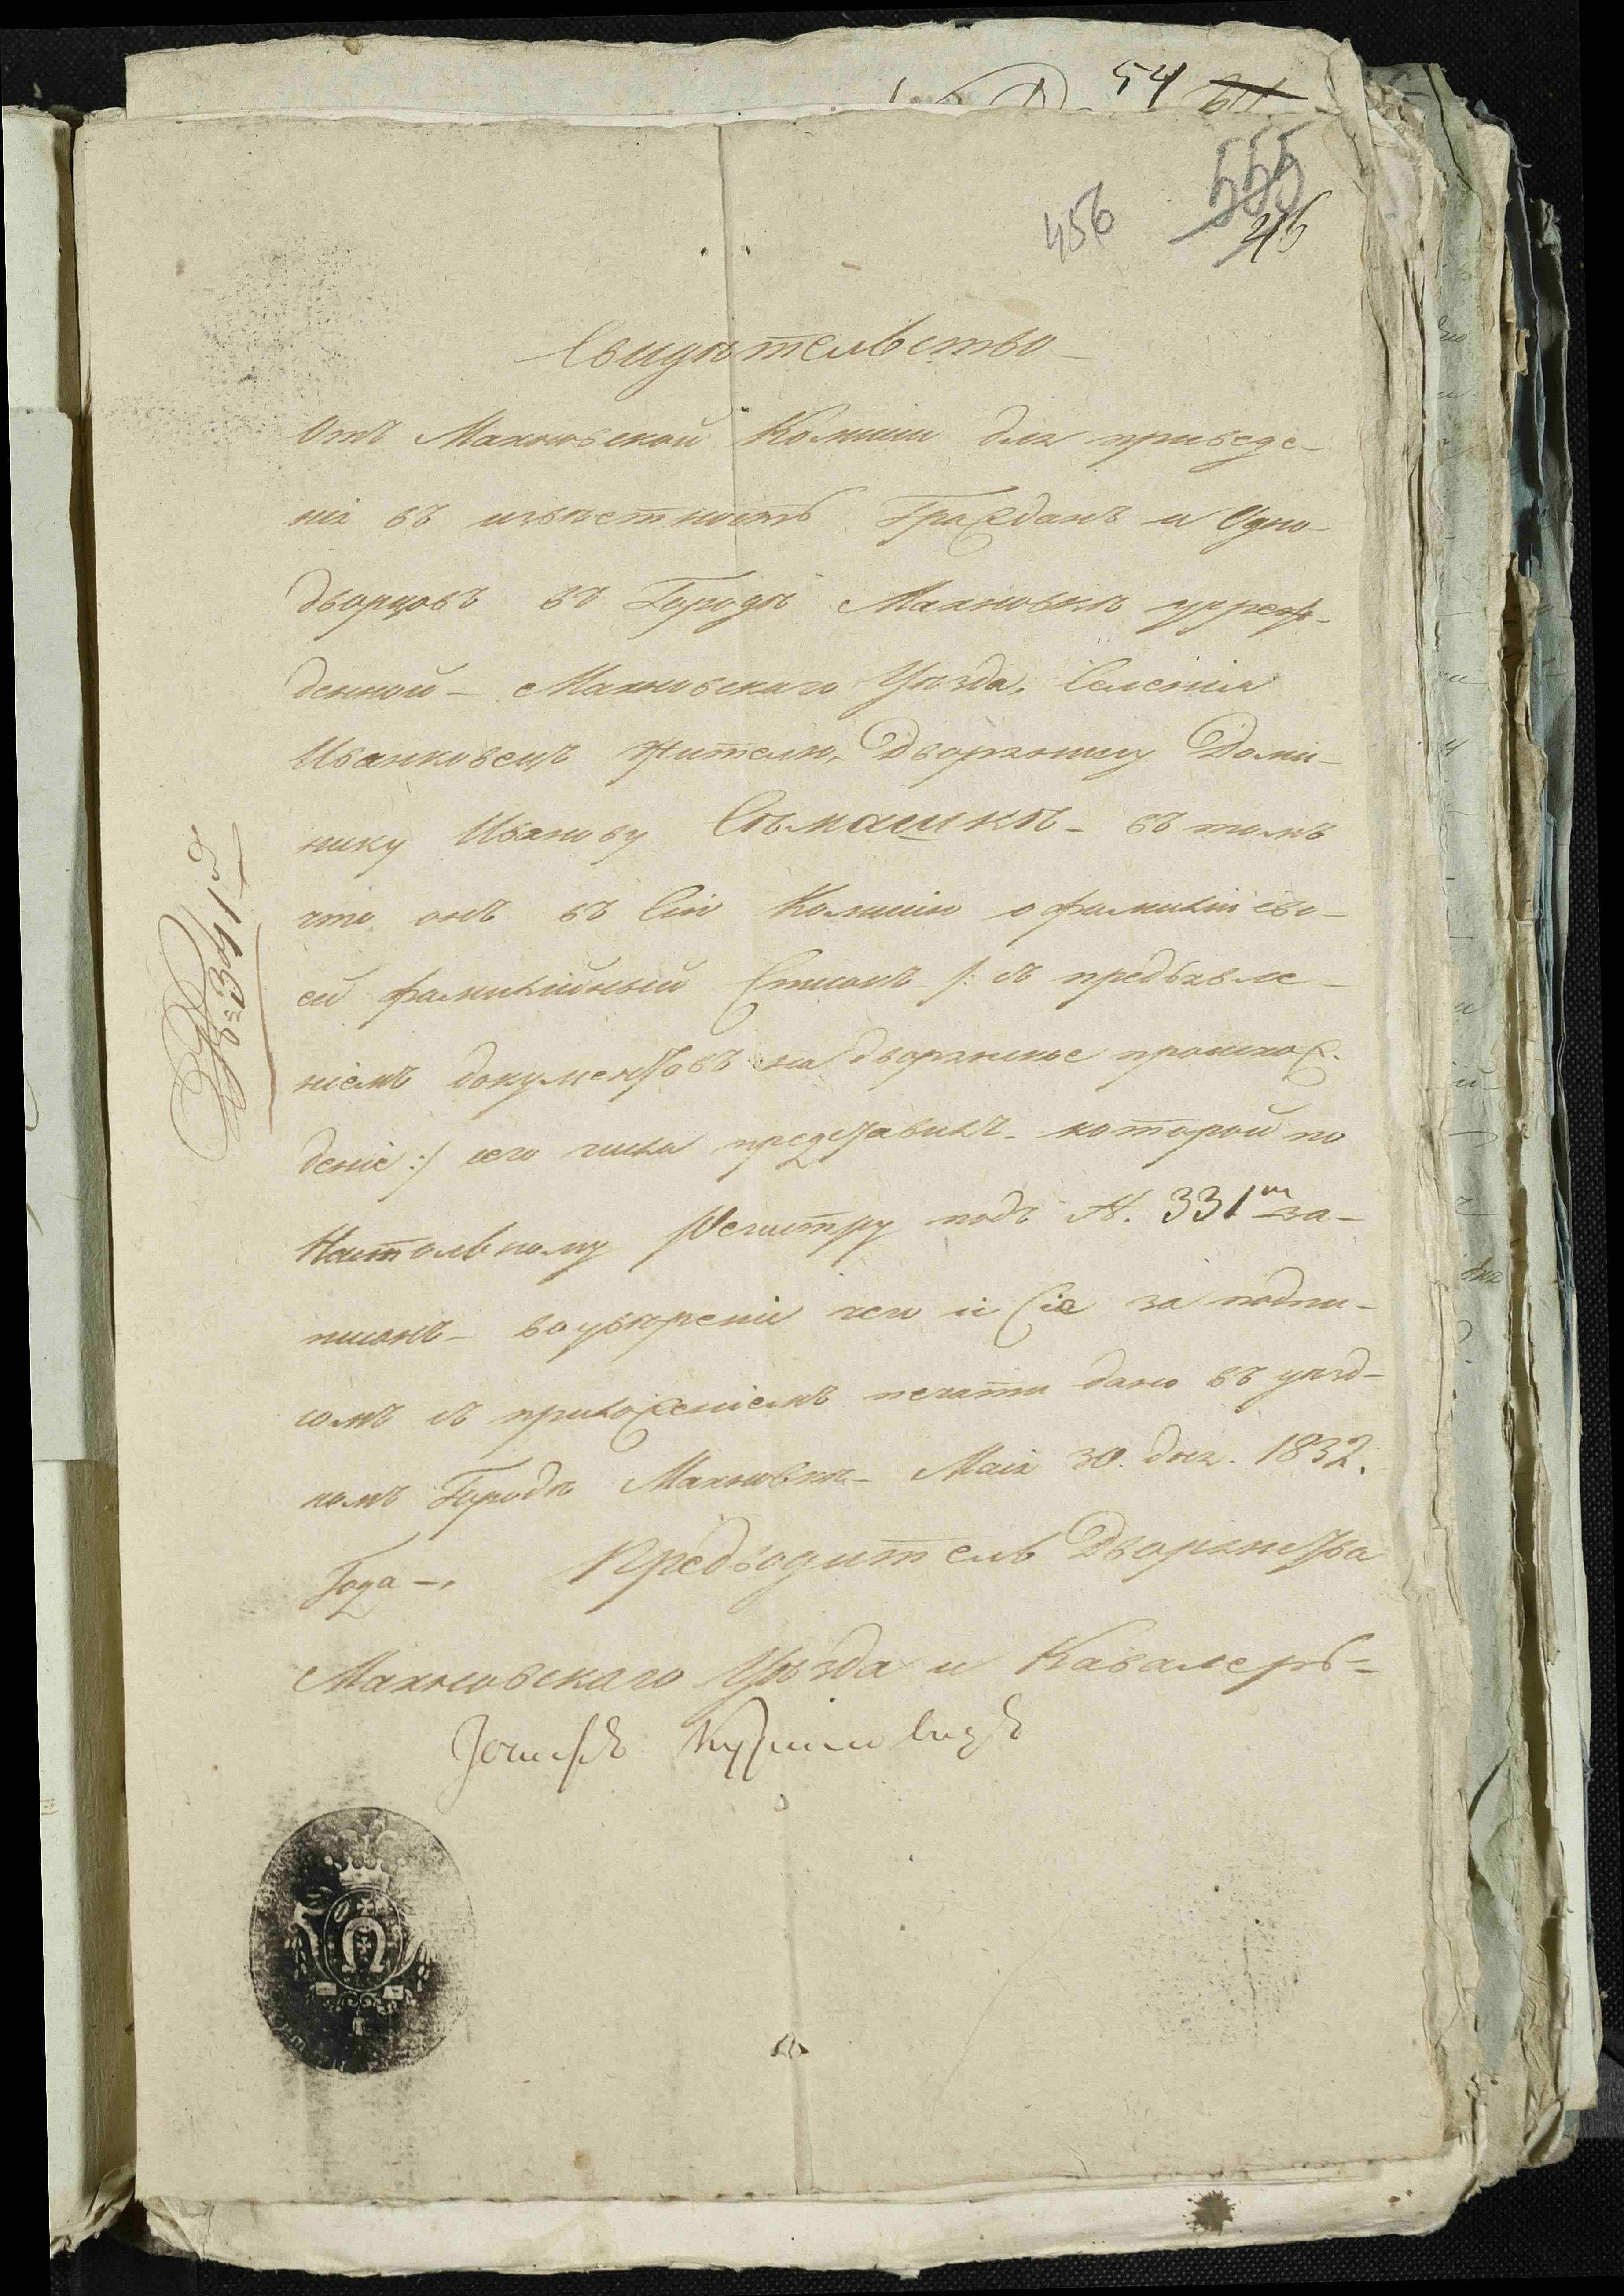 54
456
555
46
Свидѣтельство
Отъ Махновской Комисіи для приведе-
нія въ извѣстность Гражданъ и Одно-
дворцовъ въ Городѣ Махновкѣ учреж-
денной - Махновскаго Уѣзда, Селенія
Иванковецъ жителю, Дворянину Доми-
нику Иванову Сѣмашкѣ - въ томъ
что онъ въ Сію Комисію о фамиліи сво-
ей фамилійный Списокъ /: съ предъявле-
ніемъ документовъ на дворянское происхож-
деніе :/ сего числа представилъ - которой по
Настольному Регистру подъ N. 331м за-
писанъ - во увѣреніи чего и Сіе за подпи-
сомъ съ приложеніемъ печати дано въ уѣзд-
номъ Городѣ Махновкѣ - Маія 30. дня. 1832.
Года -. Предводитель Дворянства
Махновскаго Уѣзда и Кавалеръ -
Іосифъ